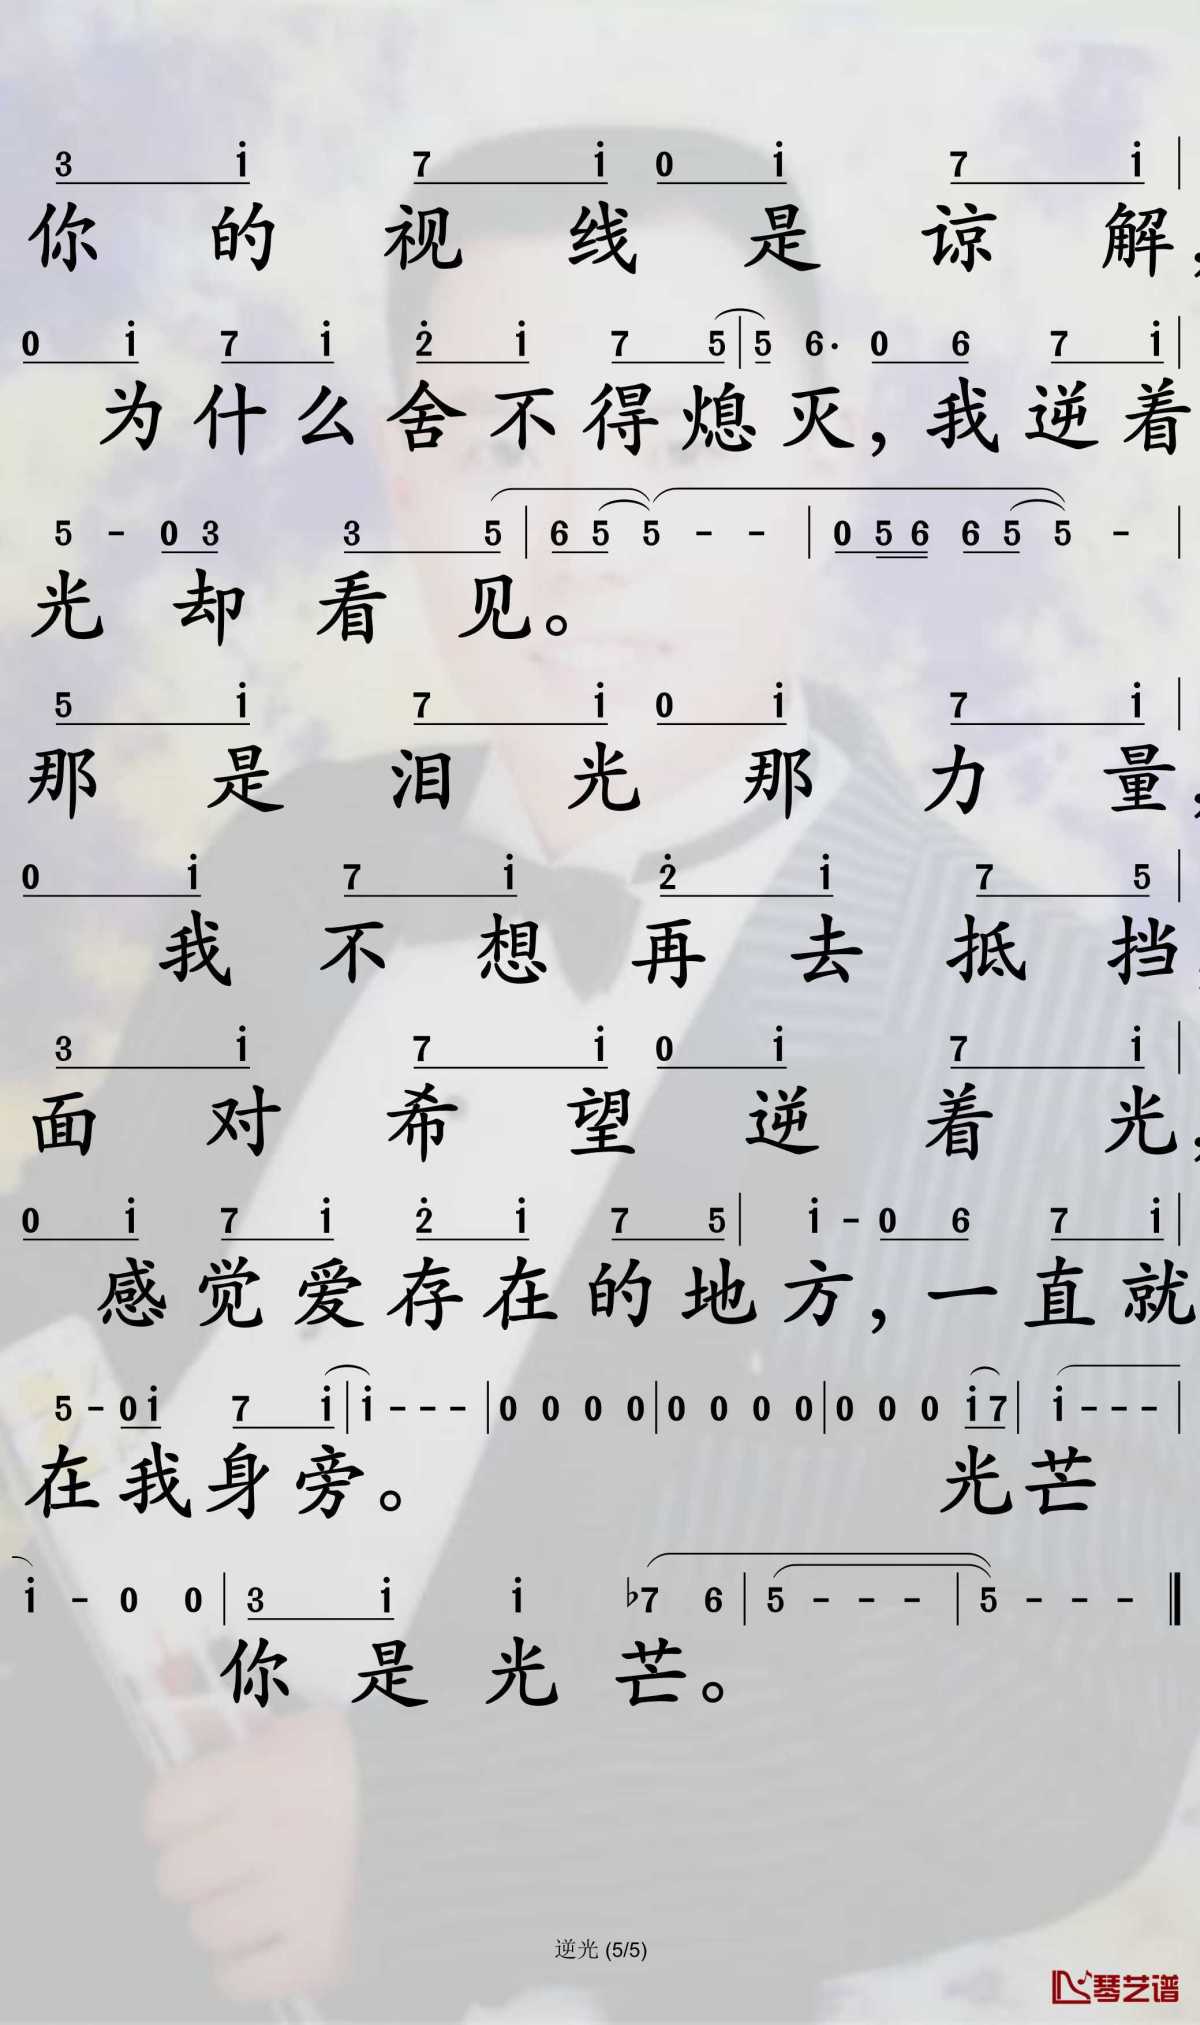 3 i 7 i 0 i 7 i |
你 的 视 线 是 谅 解,
0 i 7 i 2 i 7 5 | 5 6· 0 6 7 i |
为 什 么 舍 不 得 熄 灭, 我 逆 着
5 - 0 3 3 5 | 6 5 5 - - | 0 5 6 6 5 5 - |
光 却 看 见。
5 i 7 i 0 i 7 i |
那 是 泪 光 那 力 量,
0 i 7 i 2 i 7 5 |
我 不 想 再 去 抵 挡,
3 i 7 i 0 i 7 i |
面 对 希 望 逆 着 光,
0 i 7 i 2 i 7 5 | i - 0 6 7 i |
感 觉 爱 存 在 的 地 方, 一 直 就
5 - 0 i 7 i | i - - - | 0 0 0 0 | 0 0 0 0 | 0 0 0 i 7 | i - - - |
在 我 身 旁。 光 芒
i - 0 0 | 3 i i ♭7 6 | 5 - - - | 5 - - - ‖
你 是 光 芒。
逆光 (5/5)
琴艺谱